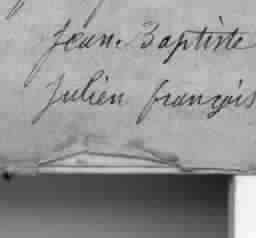 Jean-Baptiste
Julien françois